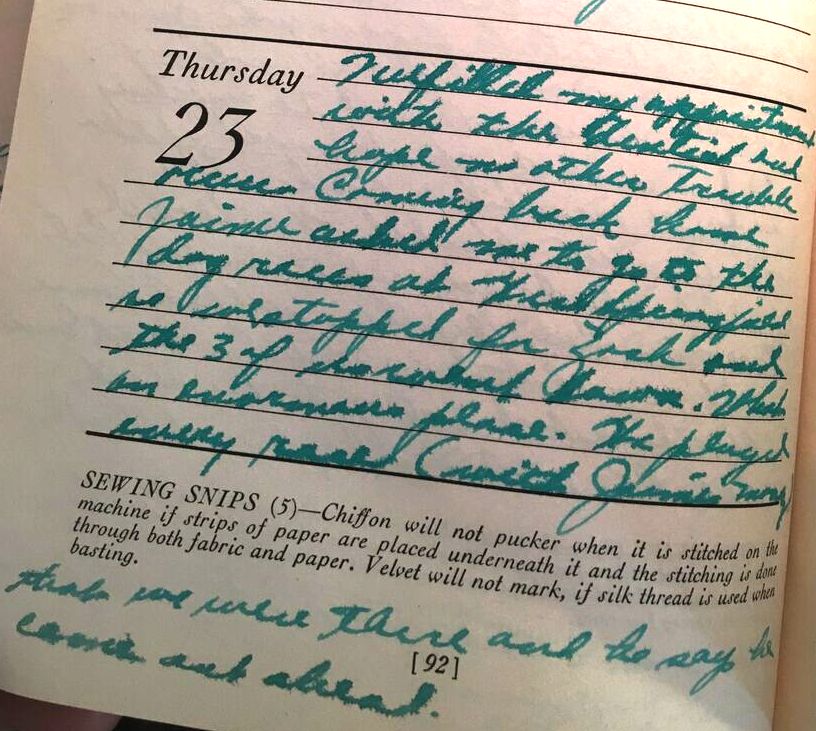 Thursday
23
Fulfilled my appointment
with the Dentist and
hope no other Trouble
Coming back home
Jaime asked me to go to the
dog races at
so we stopped for Jack and
the 3 of us went down. What
an enormous place. He played
every race (with Jaime's money
SEWING SNIPS (5)—Chiffon will not pucker when it is stitched on the
machine if strips of paper are placed underneath it and the stitching is done
through both fabric and paper. Velvet will not mark, if silk thread is used when
basting.
that we were there and he say he
came out ahead.
[92]